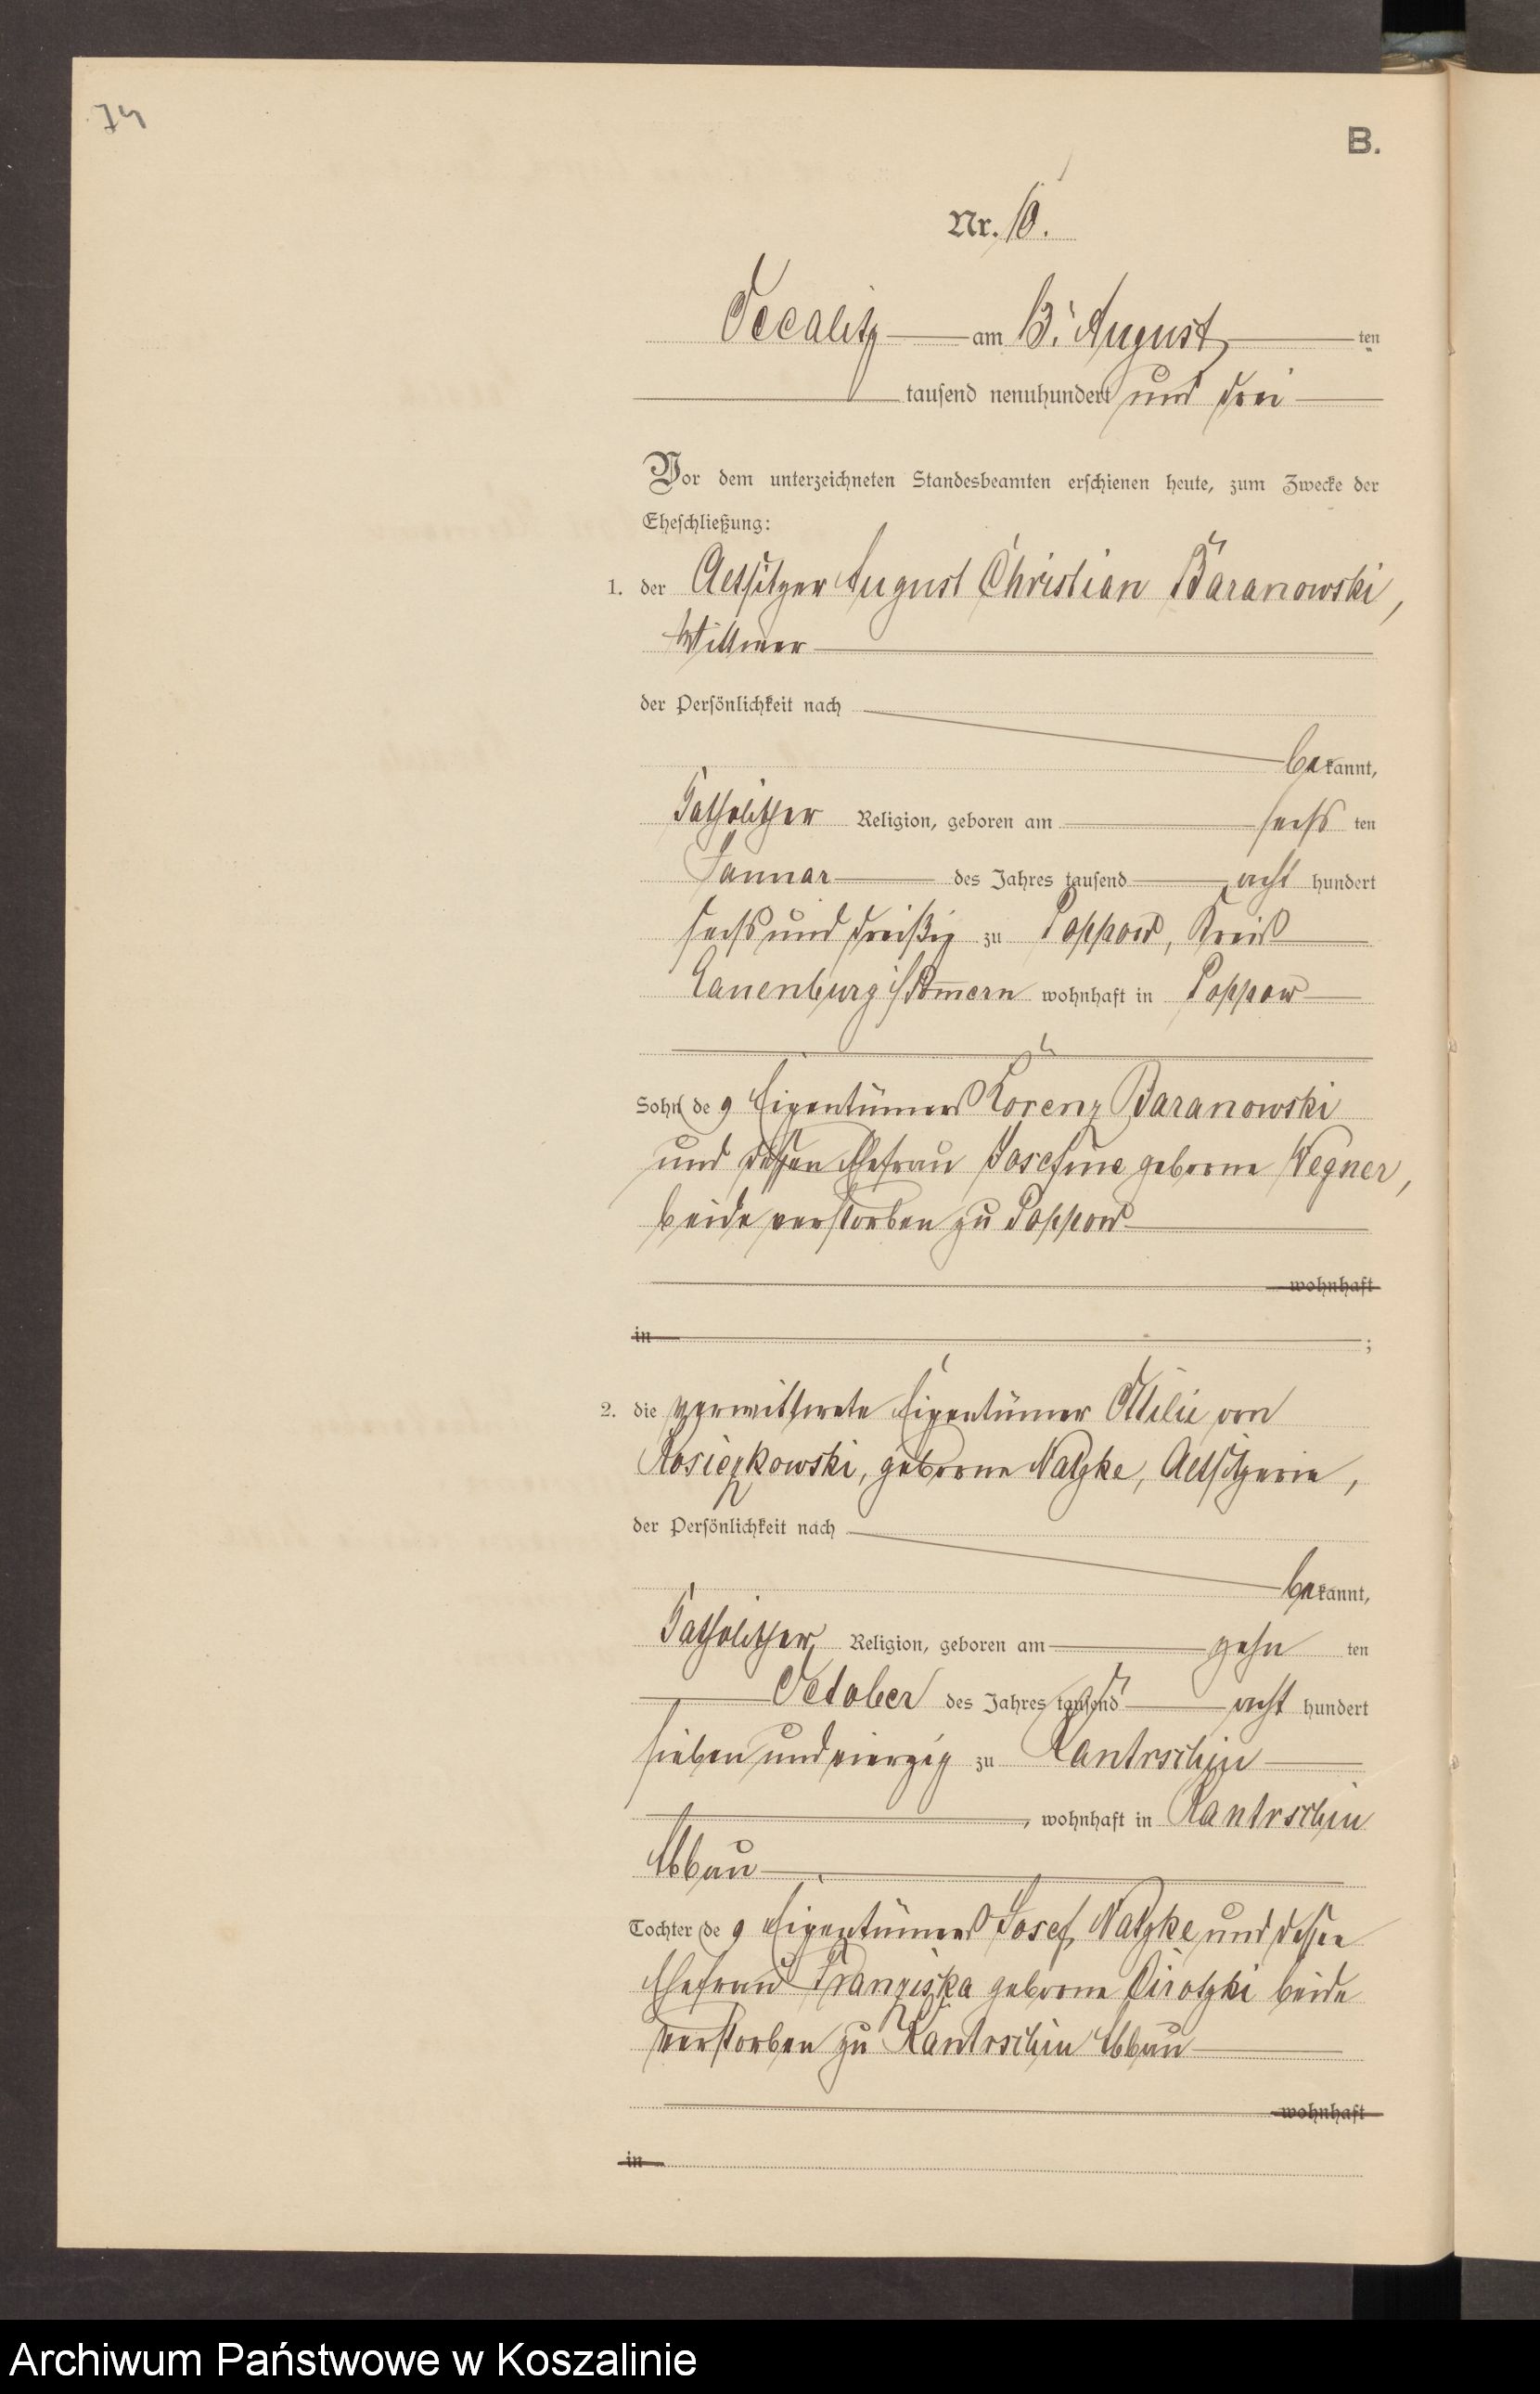 74
B.
Nr. 10.
Occalitz am 13. August ten
tausend neunhundert und drei
Vor dem unterzeichneten Standesbeamten erschienen heute, zum Zwecke der
Eheschließung:
1. der Altsitzer August Christian Baranowski,
Wittwer
der Persönlichkeit nach
bekannt,
katholischer Religion, geboren am sechs ten
Januar des Jahres tausend acht hundert
sechs und dreißig zu Poppow, Kreis
Lauenburg i/Pommern wohnhaft in Poppow
Sohn des Eigentümers Lorenz Baranowski
und dessen Ehefrau Josefine geborne Wegner,
beide verstorben zu Poppow
wohnhaft
in ;
2. die verwittwete Eigentümer Ottilie von
Kosiczkowski, geborne Natzke, Altsitzerin,
der Persönlichkeit nach
bekannt,
katholischer Religion, geboren am zehn ten
October des Jahres tausend acht hundert
sieben und vierzig zu Kantrschin
, wohnhaft in Kantrschin
Abbau
Tochter des Eigentümers Josef Natzke und dessen
Ehefrau Franziska geborne beide
verstorben zu Kantrschin Abbau
wohnhaft
in
Archiwum Państwowe w Koszalinie